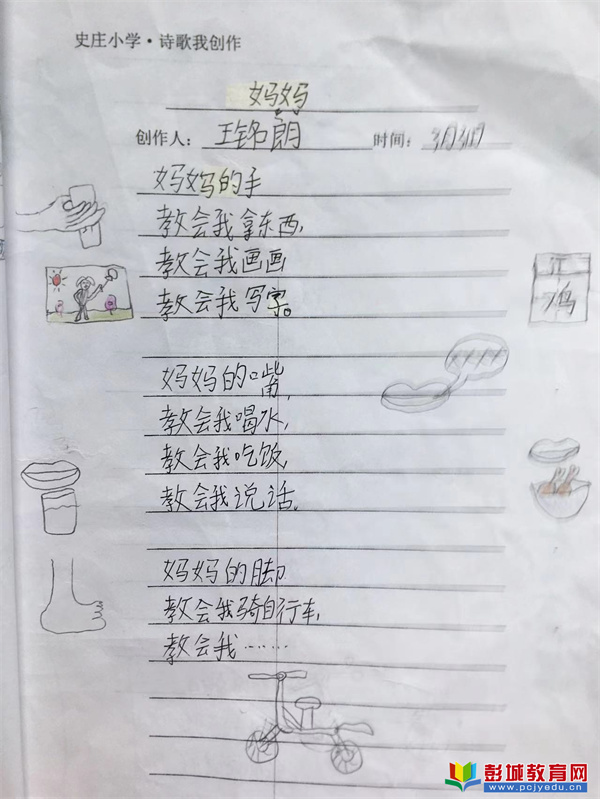 史庄小学·诗歌我创作
妈妈
创作人：王铭朗 时间：3月
妈妈的手
教会我拿东西，
教会我画画
教会我写字。
妈妈的嘴，
教会我喝水，
教会我吃饭，
教会我说话。
妈妈的脚
教会我骑自行车，
教会我……
江
鸟
彭城教育网
www.pcjyedu.cn